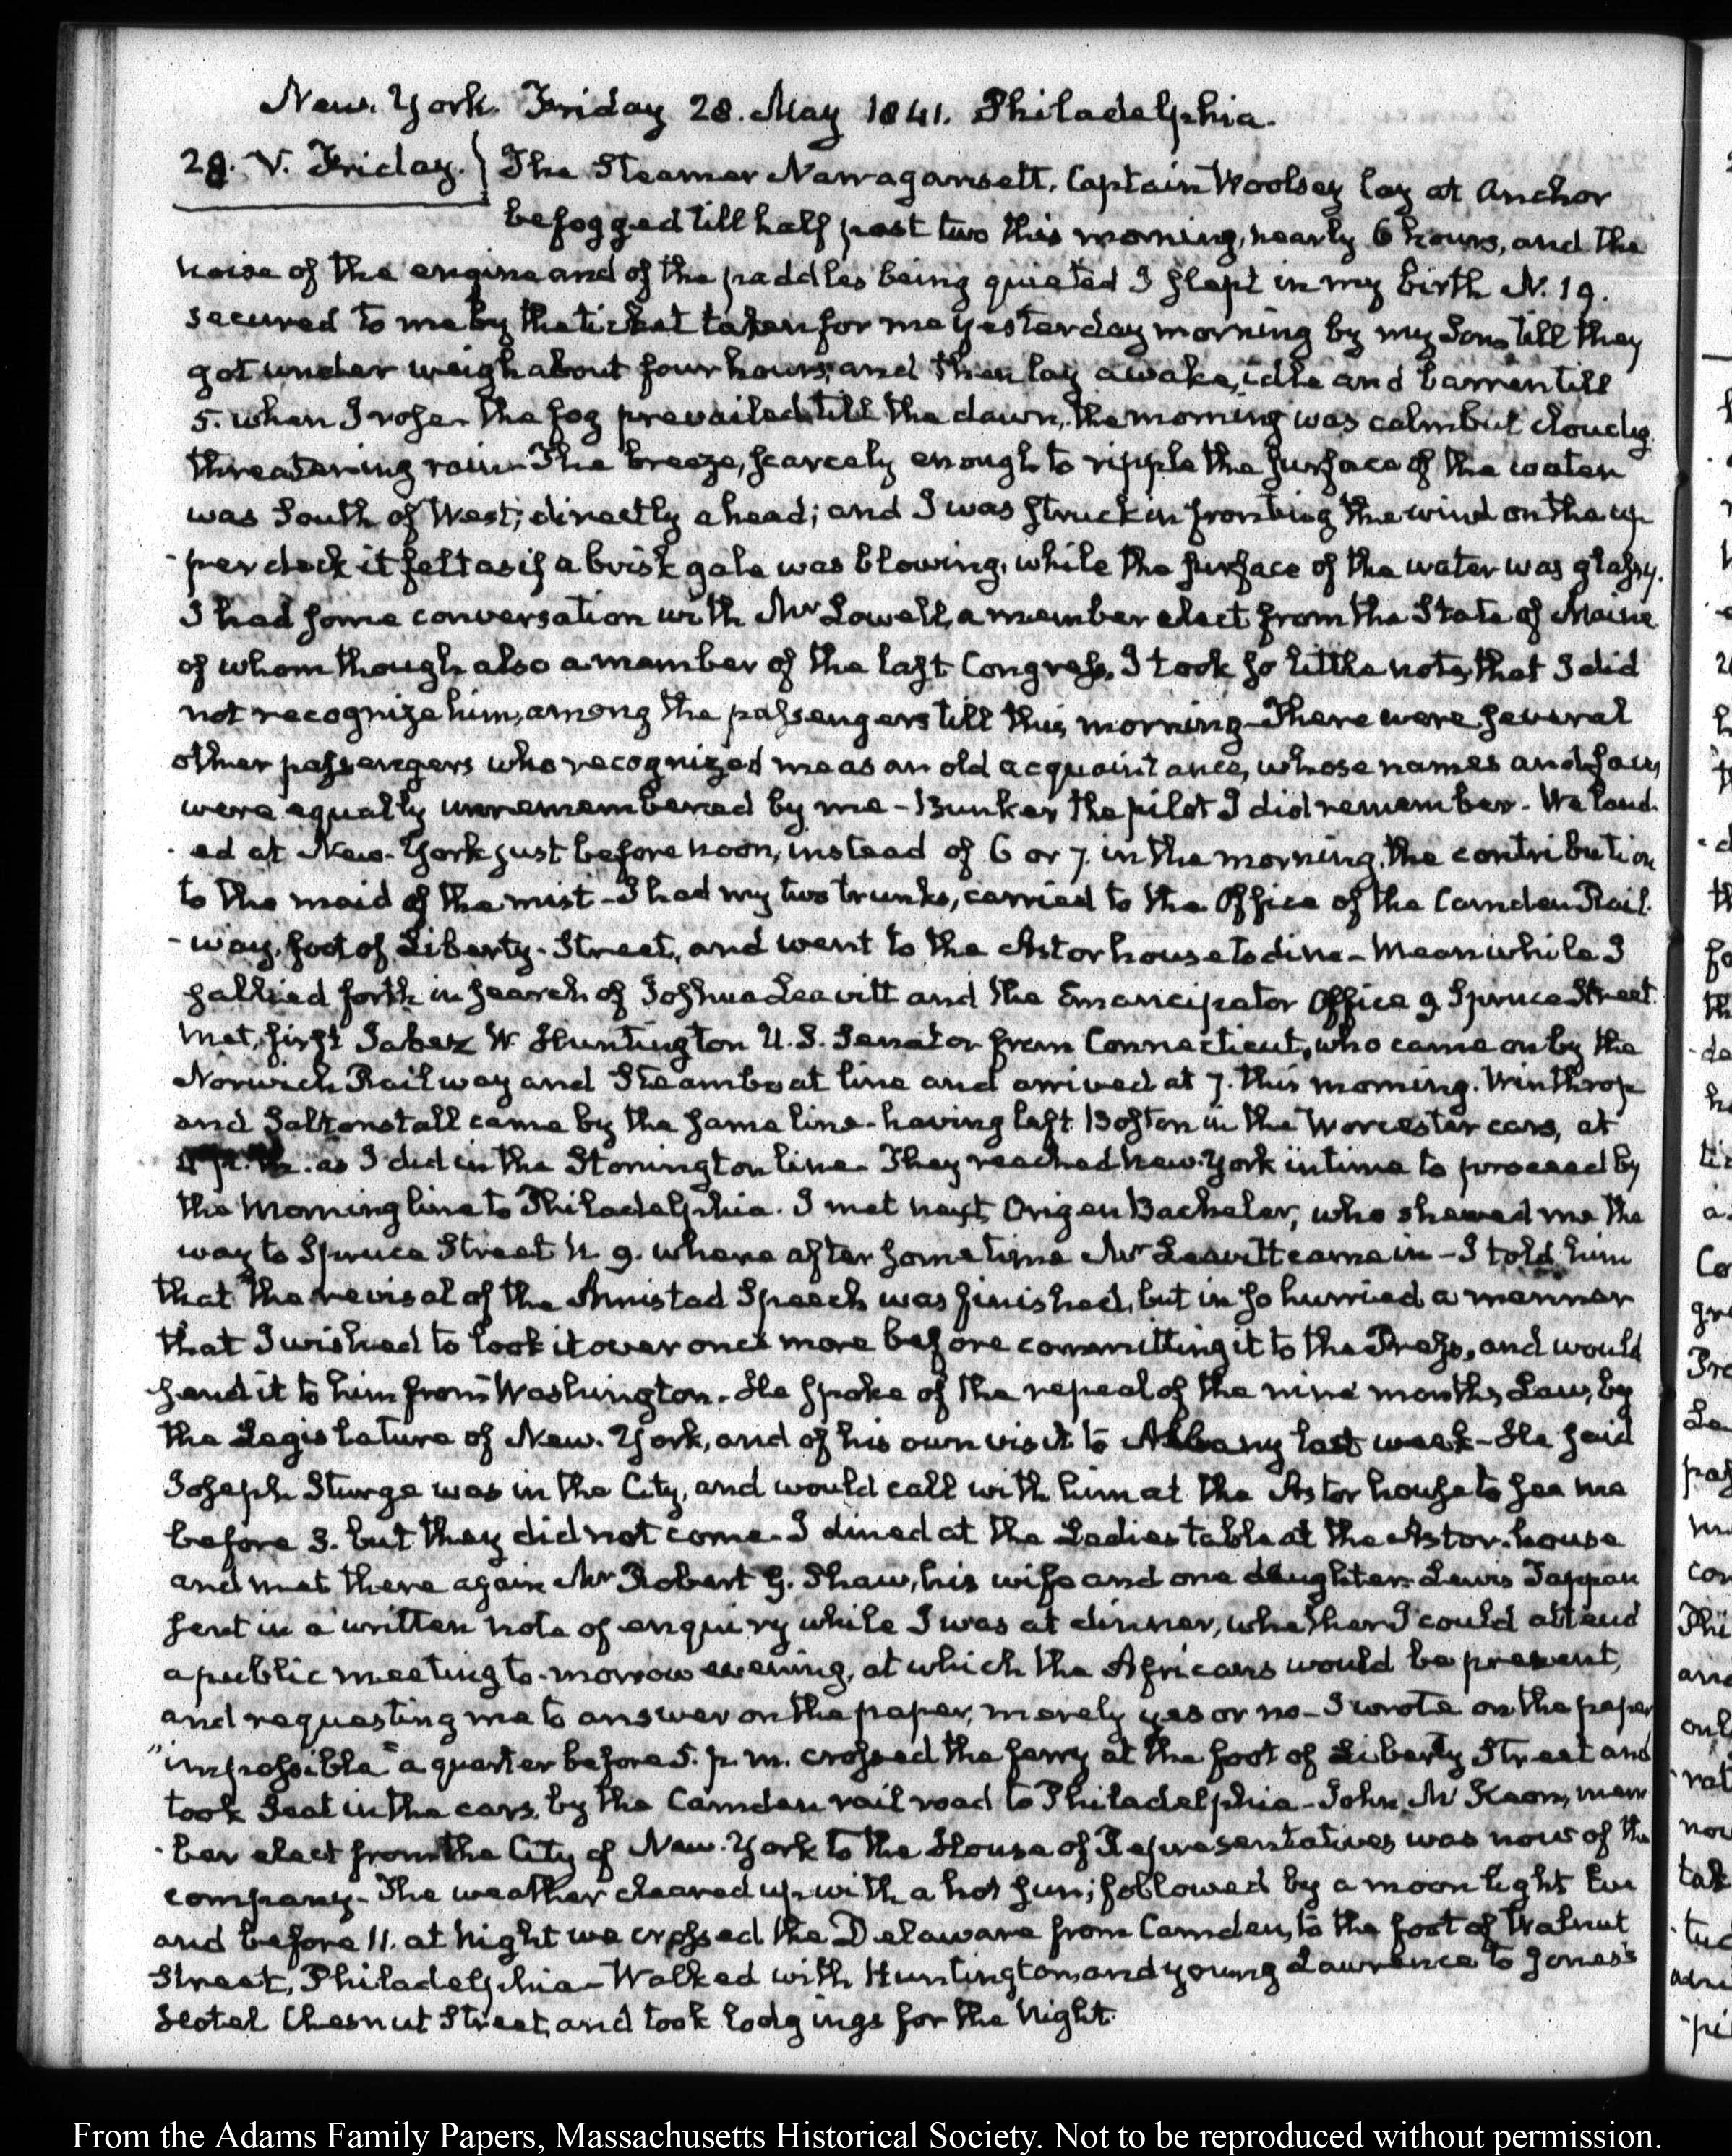 New-York. Friday 28. May 1841. Philadelphia.
28. V. Friday. } The Steamer Narragansett, Captain Woolsey lay at Anchor
befogged till half past two this morning, nearly 6 hours, and the
noise of the engine and of the paddles being quieted I slept in my birth N. 19.
secured to me by the ticket taken for me yesterday morning by my Son, till they
got under weigh about four hours, and then lay awake, idle and barren till
5. when I rose. The fog prevailed till the dawn, the morning was calm but cloudy
threatening rain. The breeze, scarcely enough to ripple the surface of the water
was South of West; directly ahead; and I was struck in fronting the wind on the up
-per deck it felt as if a brisk gale was blowing, while the surface of the water was glassy.
I had some conversation with Mr Lowell, a member elect from the State of Maine
of whom though also a member of the last Congress, I took so little note, that I did
not recognize him, among the passengers till this morning. There were several
other passengers who recognized me as an old acquaintance, whose names and faces
were equally unremembered by me - Bunker the pilot I did remember. We land
-ed at New-York just before noon, instead of 6 or 7. in the morning, the contribution
to the maid of the mist - I had my two trunks, carried to the Office of the Camden Rail
-way, foot of Liberty-Street, and went to the Astor house to dine - Meanwhile I
sallied forth in search of Joshua Leavitt and the Emancipator Office 9 Spruce Street.
Met, first Jabez W. Huntington U.S. Senator from Connecticut, who came on by the
Norwich Railway and Steamboat line and arrived at 7. this morning. Winthrop
and Saltonstall came by the same line - having left Boston in the Worcester cars, at
p.m. as I did in the Stonington line. They reached New-York in time to proceed by
the Morning line to Philadelphia. I met next Origen Bachelor, who shewed me the
way to Spruce Street N. 9. where after some time Mr Leavitt came in - I told him
that the revisal of the Amistad Speech was finished, but in so hurried a manner
that I wished to look it over once more before committing it to the Press, and would
send it to him from Washington. He spoke of the repeal of the nine months Law, by
the Legislature of New-York, and of his own visit to Albany last week - He said
Joseph Sturge was in the City, and would call with him at the Astor house to see me
before 3. but they did not come. I dined at the Ladies table at the Astor-house
and met there again Mr Robert G. Shaw, his wife and one daughter. Lewis Tappan
sent in a written note of enquiry while I was at dinner, whether I could attend
a public meeting to-morrow evening, at which the Africans would be present,
and requesting me to answer on the paper, merely yes or no - I wrote on the paper
"impossible" a quarter before 5. p.m. crossed the ferry at the foot of Liberty Street and
took Seat in the cars, by the Camden rail road to Philadelphia - John McKeon, mem
-ber elect from the City of New-York to the House of Representatives was now of the
company - The weather cleared up with a hot sun; followed by a moon light Eve
and before 11. at night we crossed the Delaware from Camden, to the foot of Walnut
Street, Philadelphia - Walked with Huntington and young Lawrence to Jones's
Hotel Chesnut Street, and took lodgings for the Night.
From the Adams Family Papers, Massachusetts Historical Society. Not to be reproduced without permission.